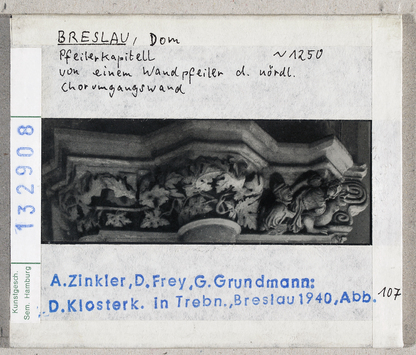 BRESLAU, Dom
Pfeilerkapitell ~1250
von einem Wandpfeiler d. nördl.
Chorumgangswand
132908
Kunstgesch.
Sem. Hamburg
A.Zinkler, D.Frey, G.Grundmann:
D.Klosterk. in Trebn., Breslau 1940, Abb. 107